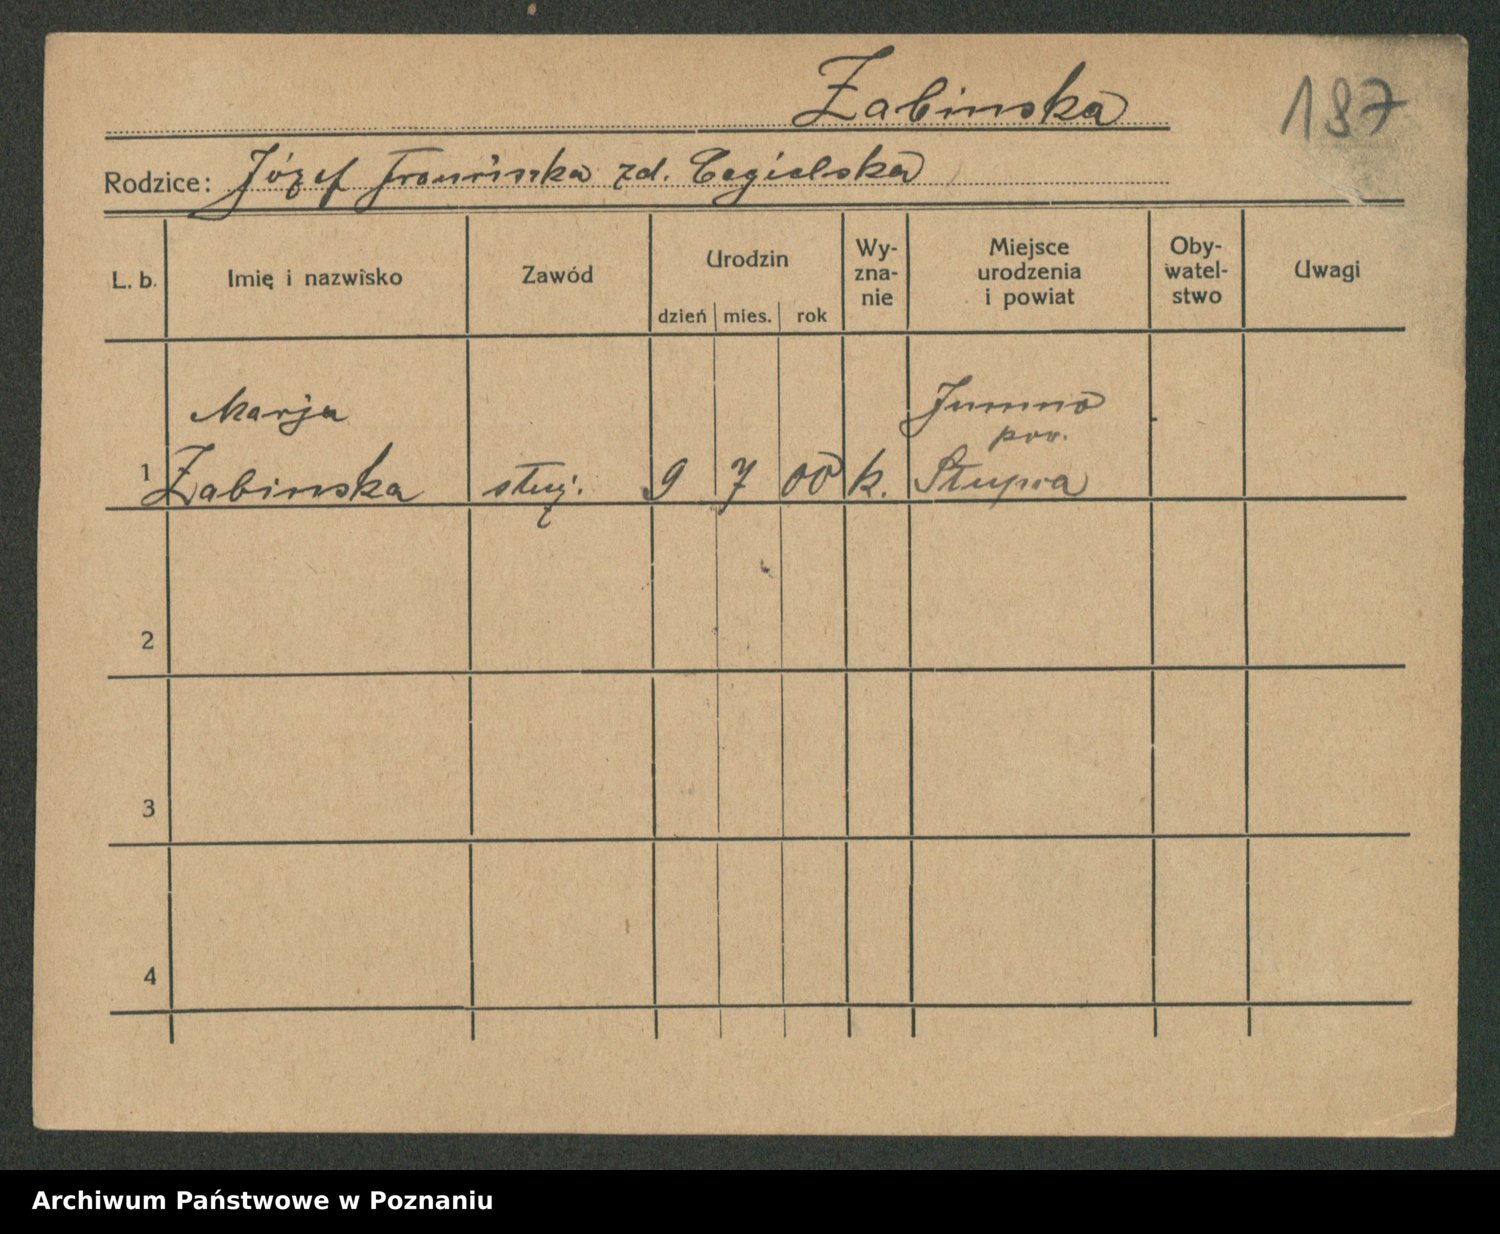 Żabinska
187
Rodzice: Józef Franciszka zd. Cegielska
L. b.
Imię i nazwisko
Zawód
Urodzin
dzień mies. rok
Wy-
zna-
nie
Miejsce
urodzenia
i powiat
Oby-
watel-
stwo
Uwagi
Marja
pow.
1 Żabinska służ. 9 7 00 k. Słupca
2
3
4
Archiwum Państwowe w Poznaniu